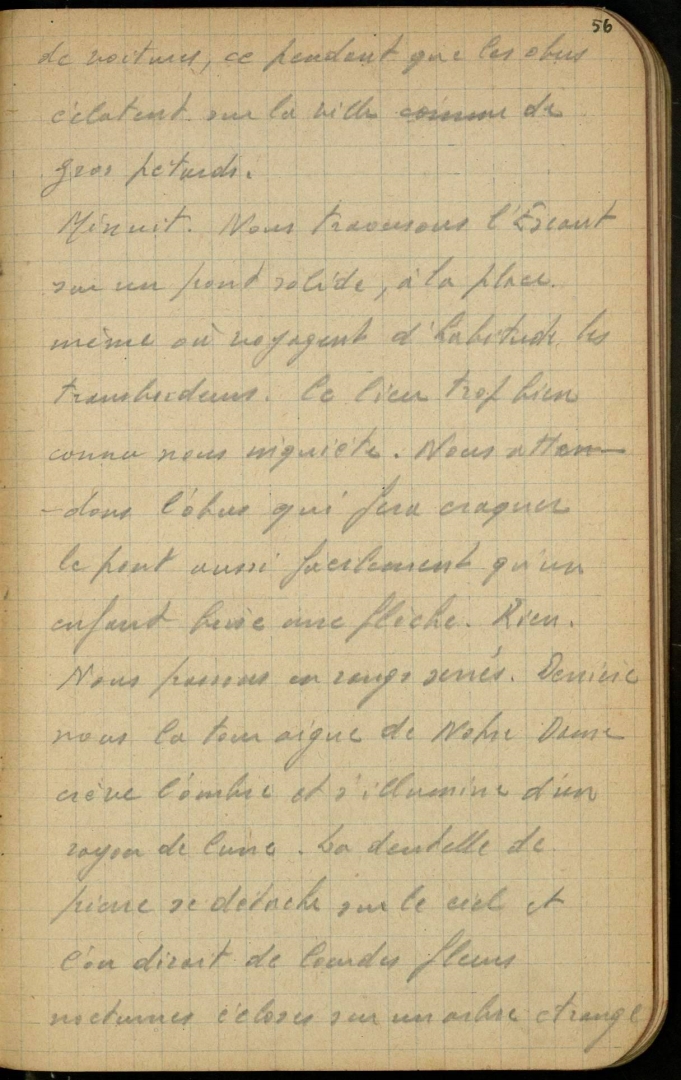 56
de voitures, ce pendant que les obus
éclatent sur la ville comme de
gros pétards.
Minuit. Nous traversons l'Escaut
sur un pont solide, à la place
même où voyagent d'habitude les
transbordeurs. Ce lieu trop bien
connu nous inquiète. Nous atten-
-dons l'obus qui fera craquer
le pont aussi facilement qu'un
enfant brise une flèche. Rien.
Nous passons en rangs serrés. Derrière
nous la tour aigue de Notre Dame
crève l'ombre et s'illumine d'un
rayon de lune. La dentelle de
pierre se détache sur le ciel et
l'on dirait de lourdes fleurs
nocturnes écloses sur un arbre étrange